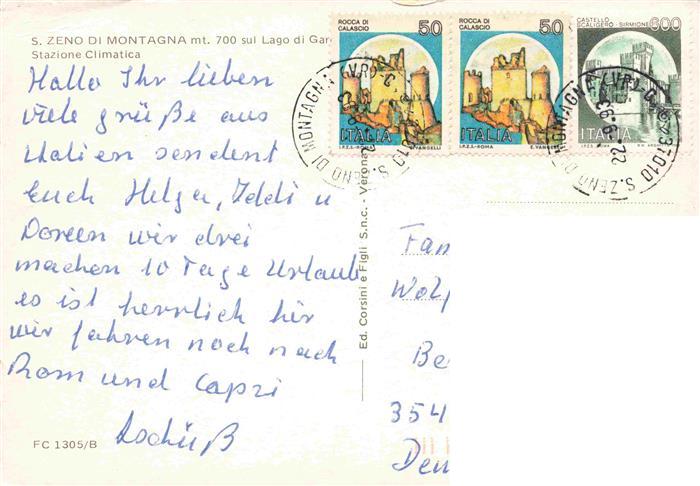 S. ZENO DI MONTAGNA mt. 700 sul Lago di Gar
Stazione Climatica
Hallo Ihr lieben
viele grüße aus
Italien sendent
Euch Helga, Eddi u
Doreen wir drei
machen 10 Tage Urlaub
es ist herrlich hir
wir fahren noch nach
Rom und Capri
Tschüß
FC 1305/B
Ed. Corsini e Figli S.n.c. - Verona
ROCCA DI CALASCIO 50
ITALIA
I.P.Z.S.-ROMA E. VANGELLI
ROCCA DI CALASCIO 50
ITALIA
I.P.Z.S.-ROMA E. VANGELLI
CASTELLO SCALIGERO - SIRMIONE 600
ITALIA
I.P.Z.S. - ROMA
S. ZENO DI MONTAGNA (VR)
S. ZENO DI MONTAGNA (VR)
Fam
Wolf
Be
354